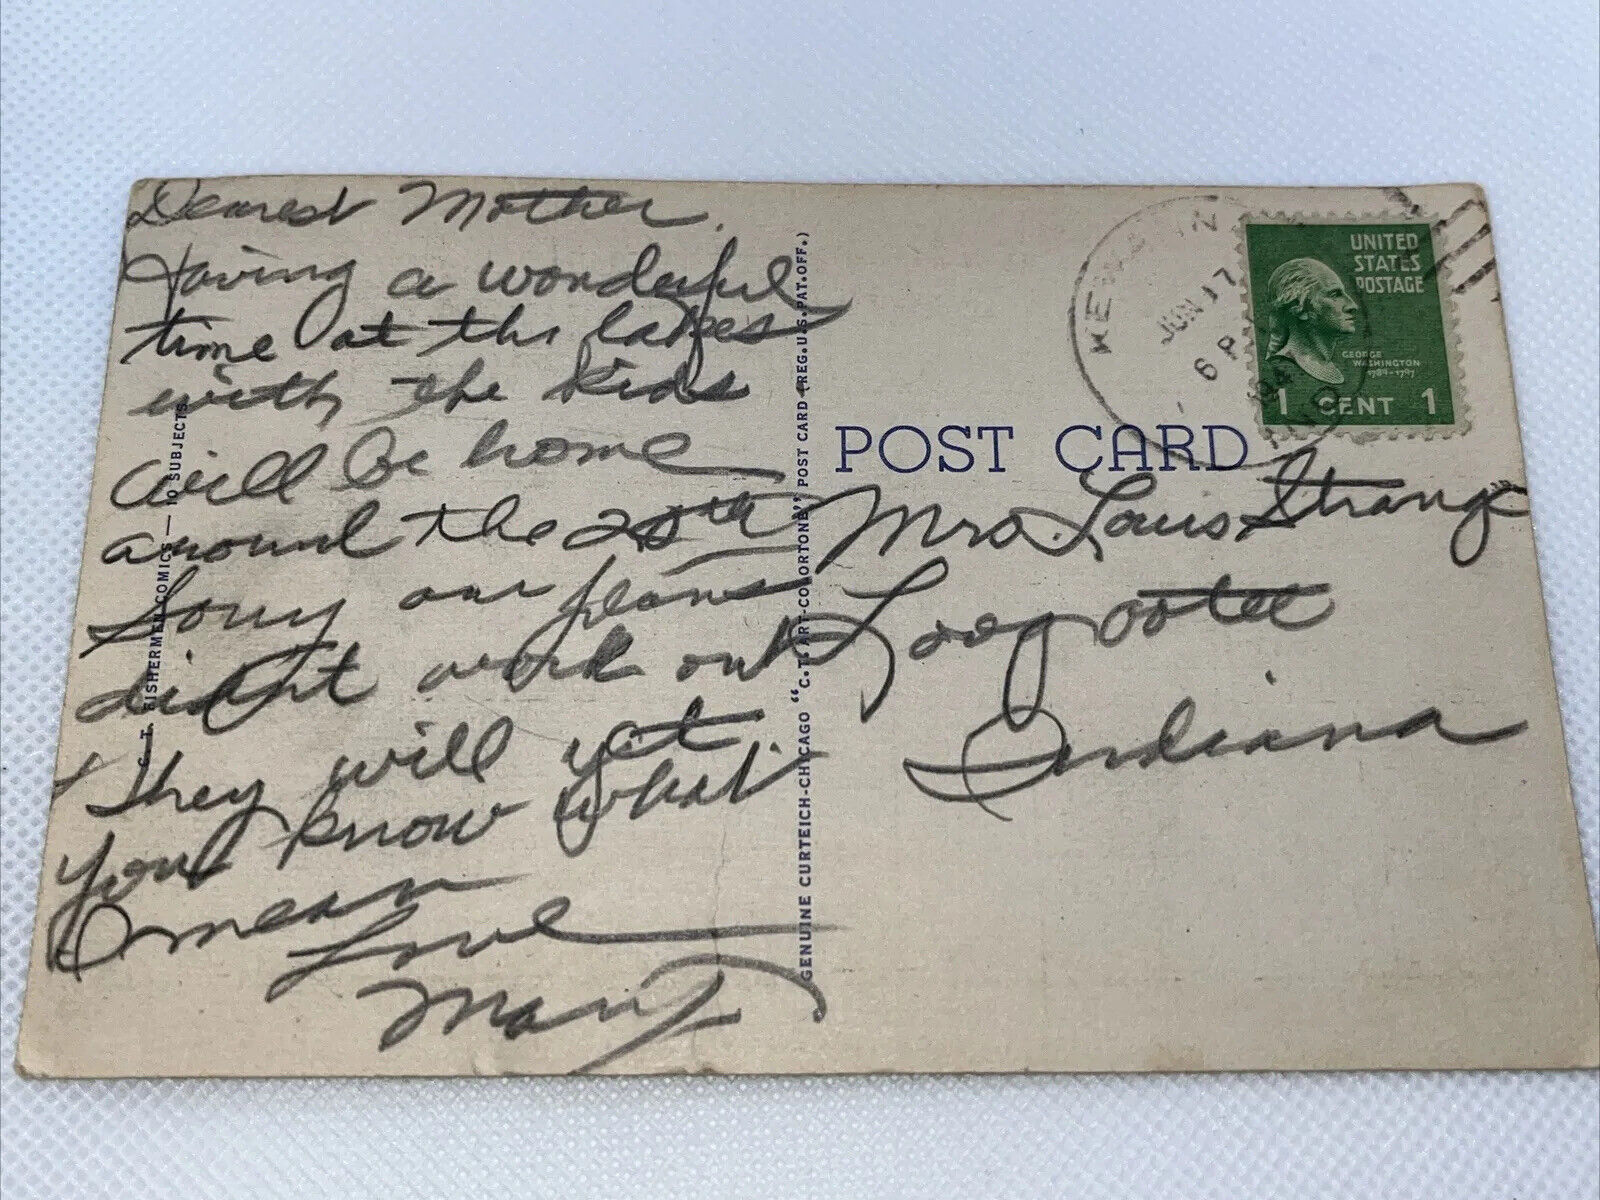 Dearest Mother.
Having a wonderful
time at the lakes
with the kids
will be home
around the 20th
Sorry our plans
didn't work out
they will yet
you know what
I mean
Love
Mary
C. T. FISHERMEN COMICS — 10 SUBJECTS
GENUINE CURTEICH-CHICAGO "C.T. ART-COLORTONE" POST CARD (REG. U.S. PAT. OFF.)
POST CARD
JUN 17
6 P
194
IND
UNITED
STATES
POSTAGE
GEORGE
WASHINGTON
1789-1797
1 CENT 1
Mrs. Louis Strange
Loogootee
Indiana